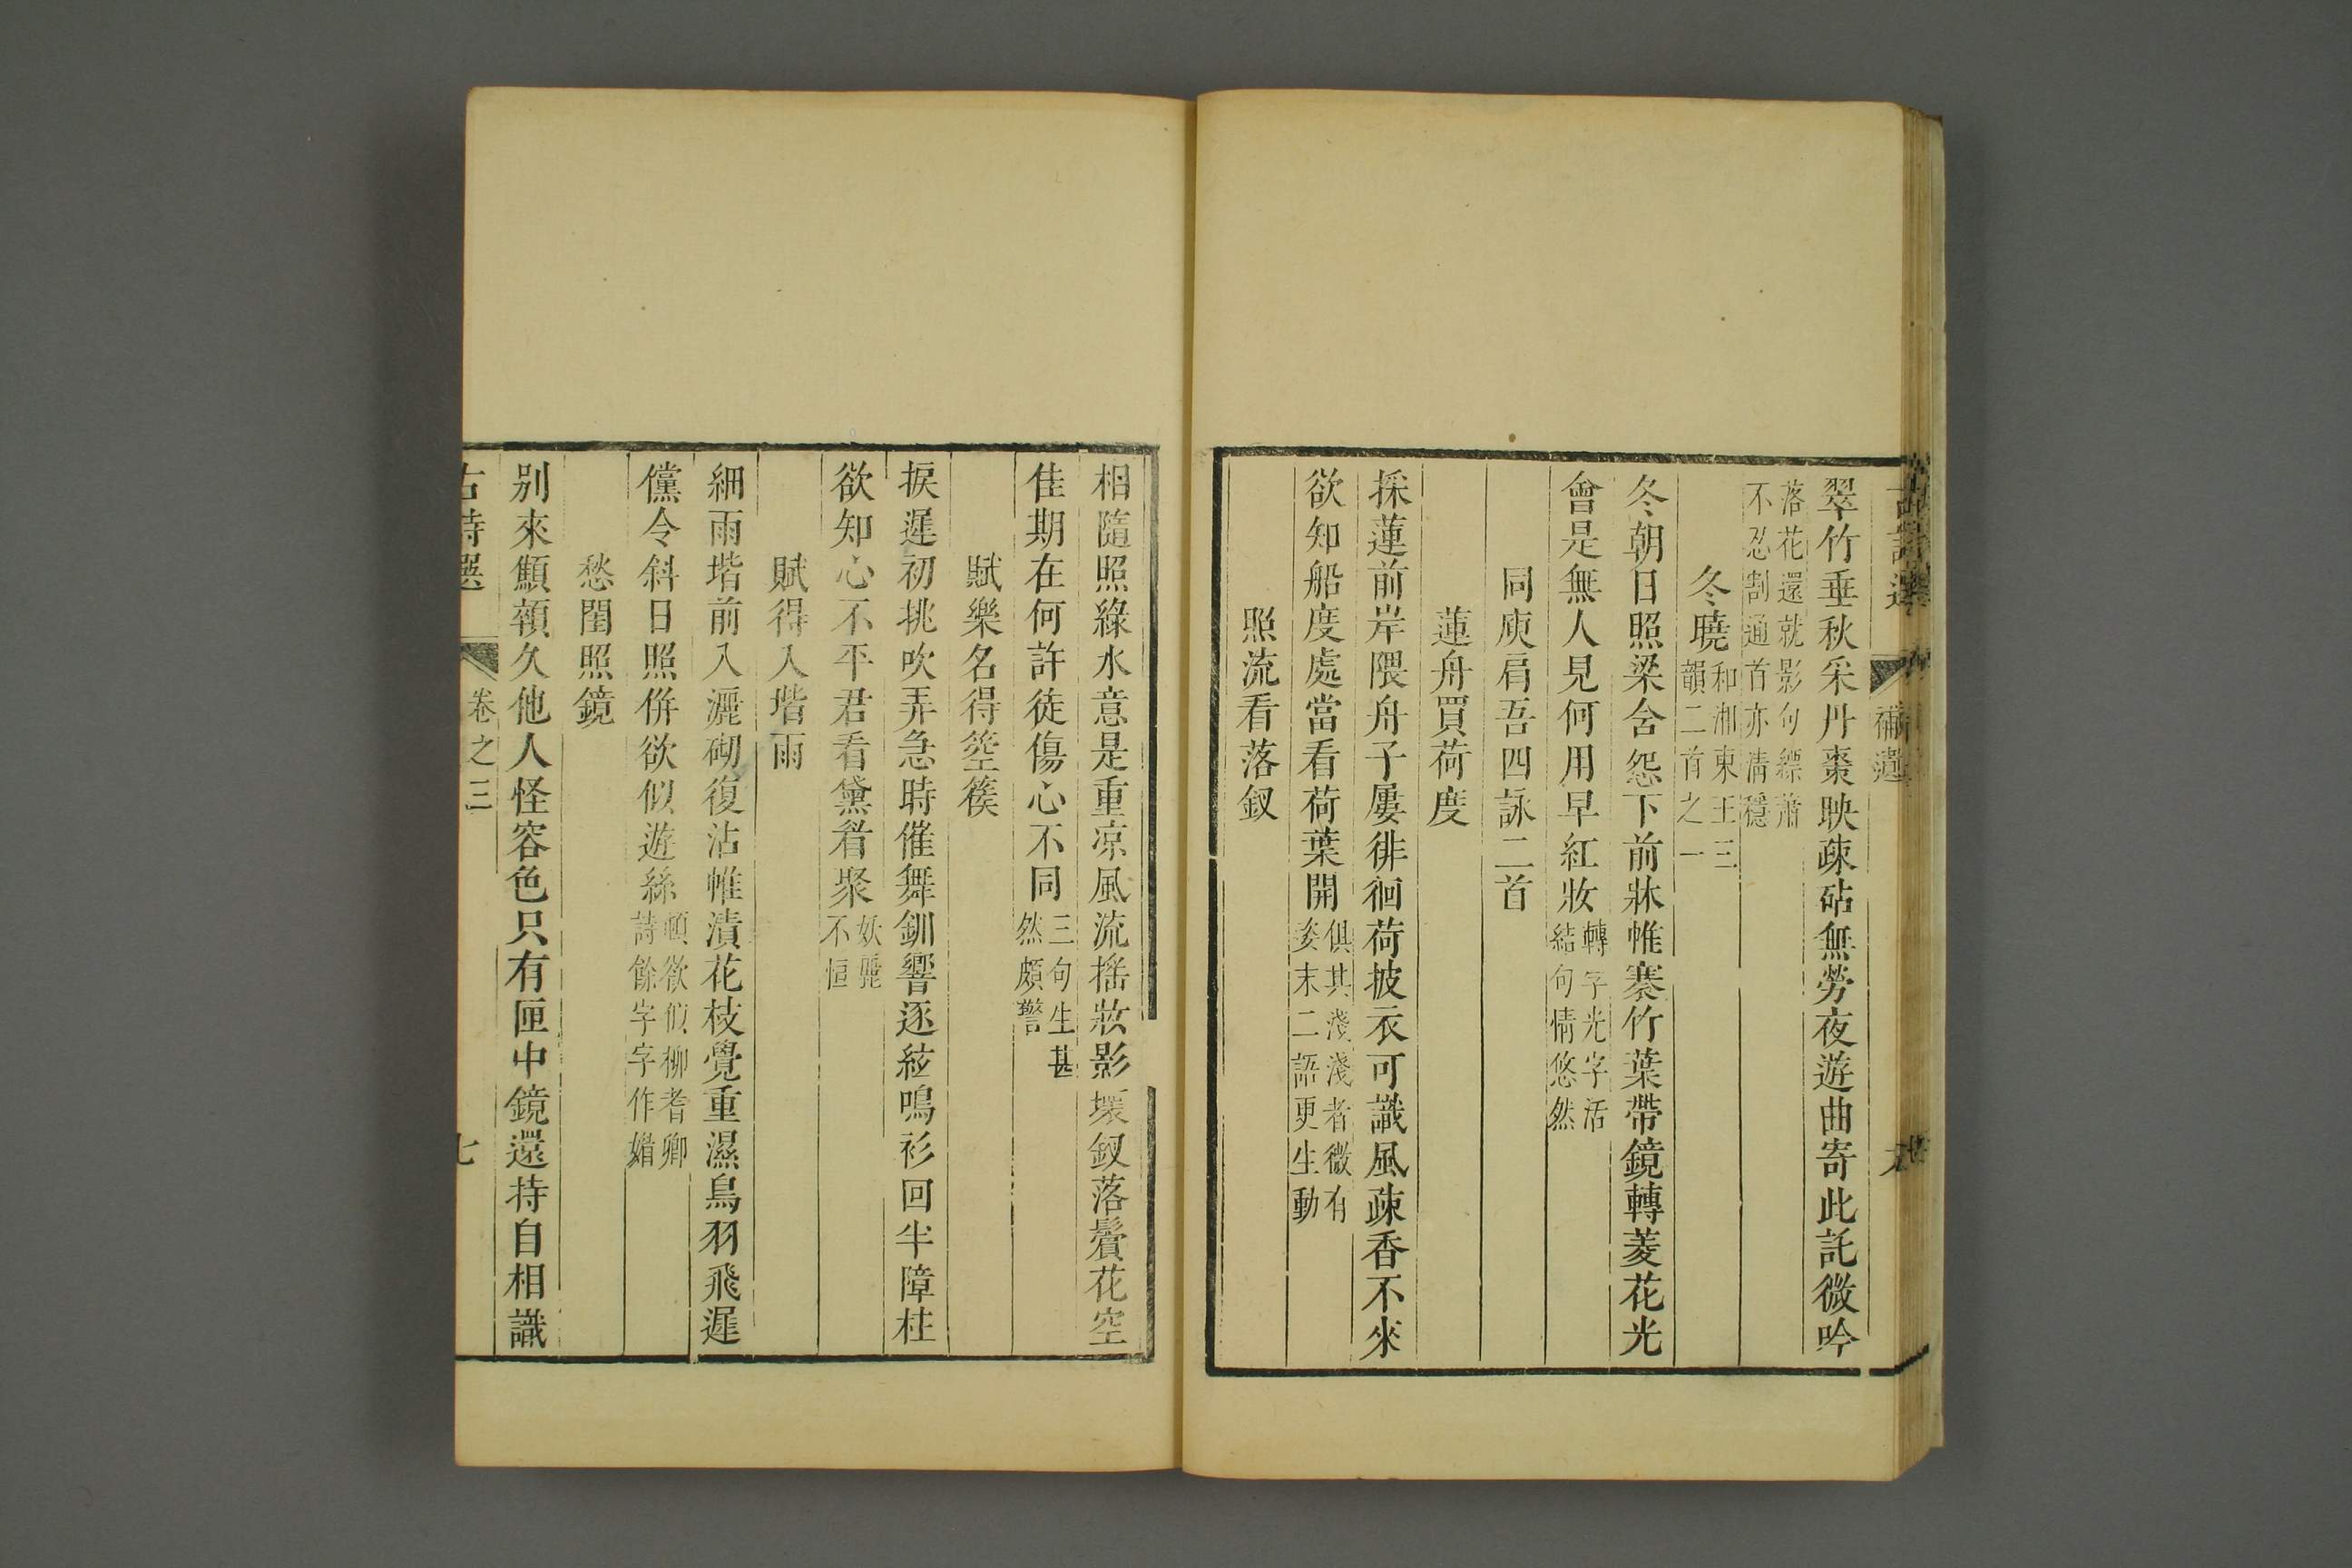 翠竹垂秋采丹棗映疎砧無勞夜遊曲寄此託微吟
落花還就影句縹蕭
不忍割通首亦清穩
冬曉和湘東王三
韻二首之一
冬朝日照梁含怨下前牀帷褰竹葉帶鏡轉菱花光
會是無人見何用早紅妝轉字光字活
結句情悠然
同庾肩吾四詠二首
蓮舟買荷度
採蓮前岸隈舟子屢徘徊荷披衣可識風疎香不來
欲知船度處當看荷葉開俱其淺淺者微有
姿末二語更生動
照流看落釵
相隨照綠水意是重凉風流搖妝影壞釵落鬢花空
佳期在何許徒傷心不同三句生甚
然頗警
賦樂名得箜篌
捩遲初挑吹弄急時催舞釧響逐絃鳴衫回半障柱
欲知心不平君看黛眉聚妖麗
不恒
賦得入堦雨
細雨堦前入灑砌復沾帷漬花枝覺重濕鳥羽飛遲
儻令斜日照併欲似遊絲頓欲似柳耆卿
詩餘字字作媚
愁閨照鏡
別來顦顇久他人怪容色只有匣中鏡還持自相識
古詩選
卷之三
七